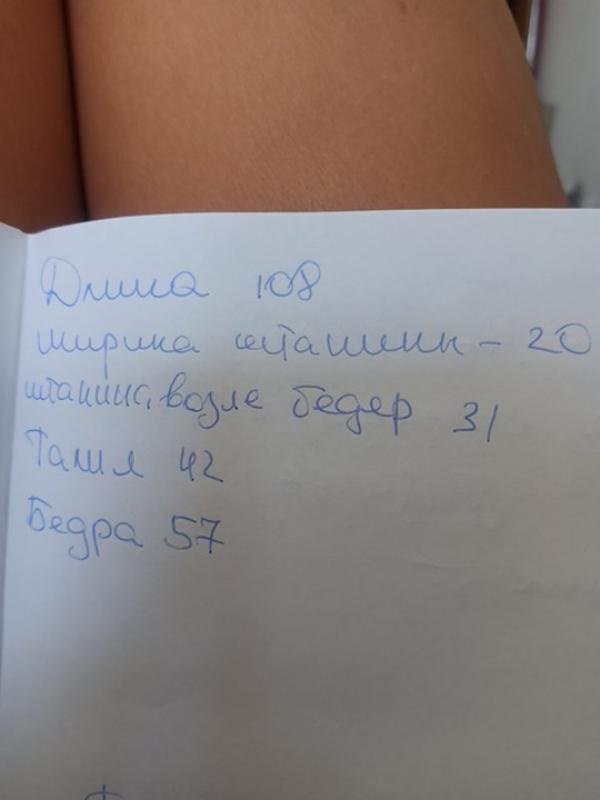 Длина 108
ширина штанини - 20
штанина, возле бедер 31
Талия 42
Бедра 57